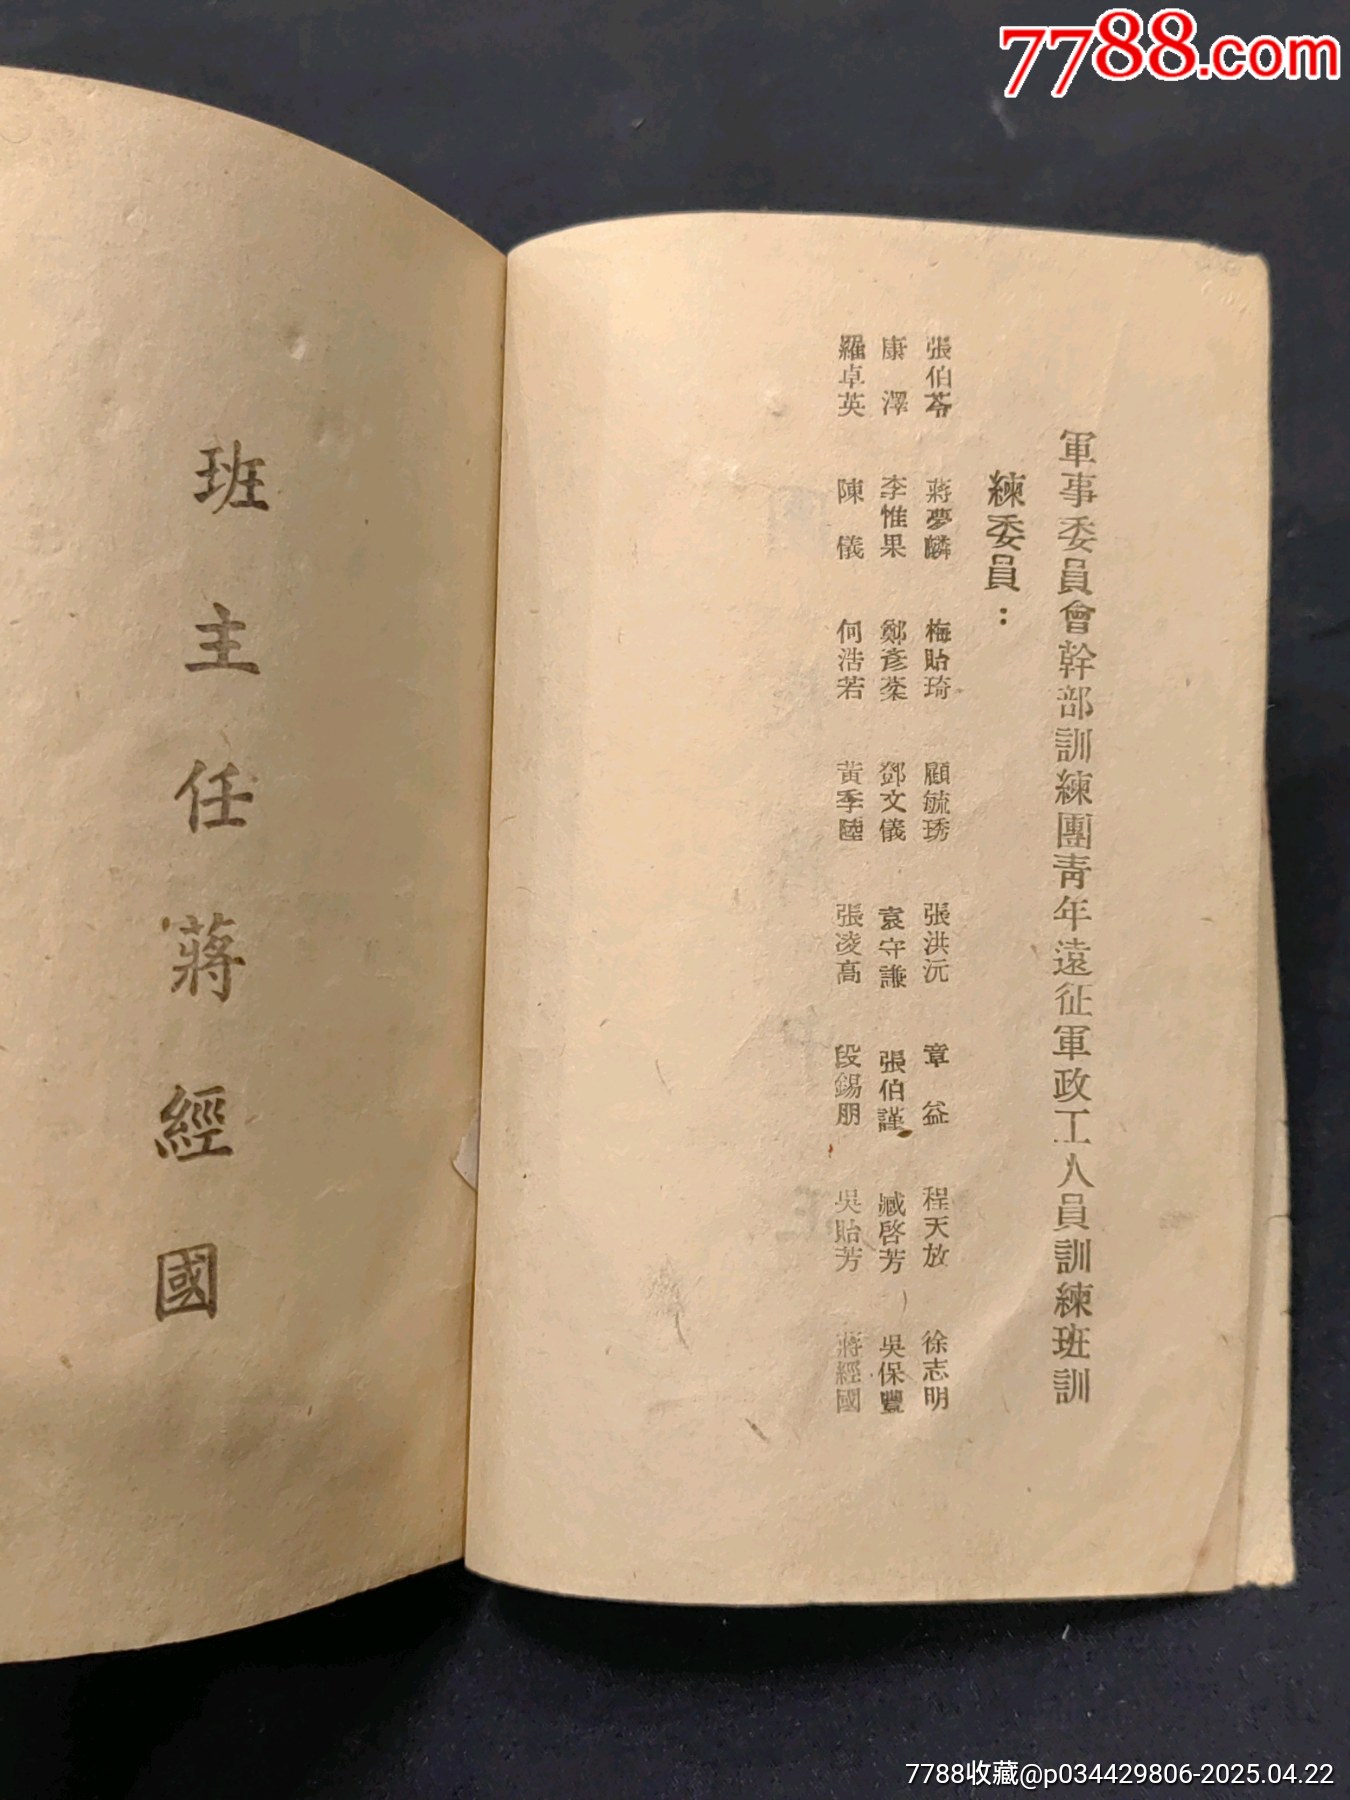 7788.com
軍事委員會幹部訓練團青年遠征軍政工人員訓練班訓
練委員：
張伯苓 蔣夢麟 梅貽琦 顧毓琇 張洪沅 章益 程天放 徐志明
康澤 李惟果 鄭彥棻 鄧文儀 袁守謙 張伯謹 臧啓芳 吳保豐
羅卓英 陳儀 何浩若 黃季陸 張凌高 段錫朋 吳貽芳 蔣經國
班主任蔣經國
7788收藏@p034429806-2025.04.22